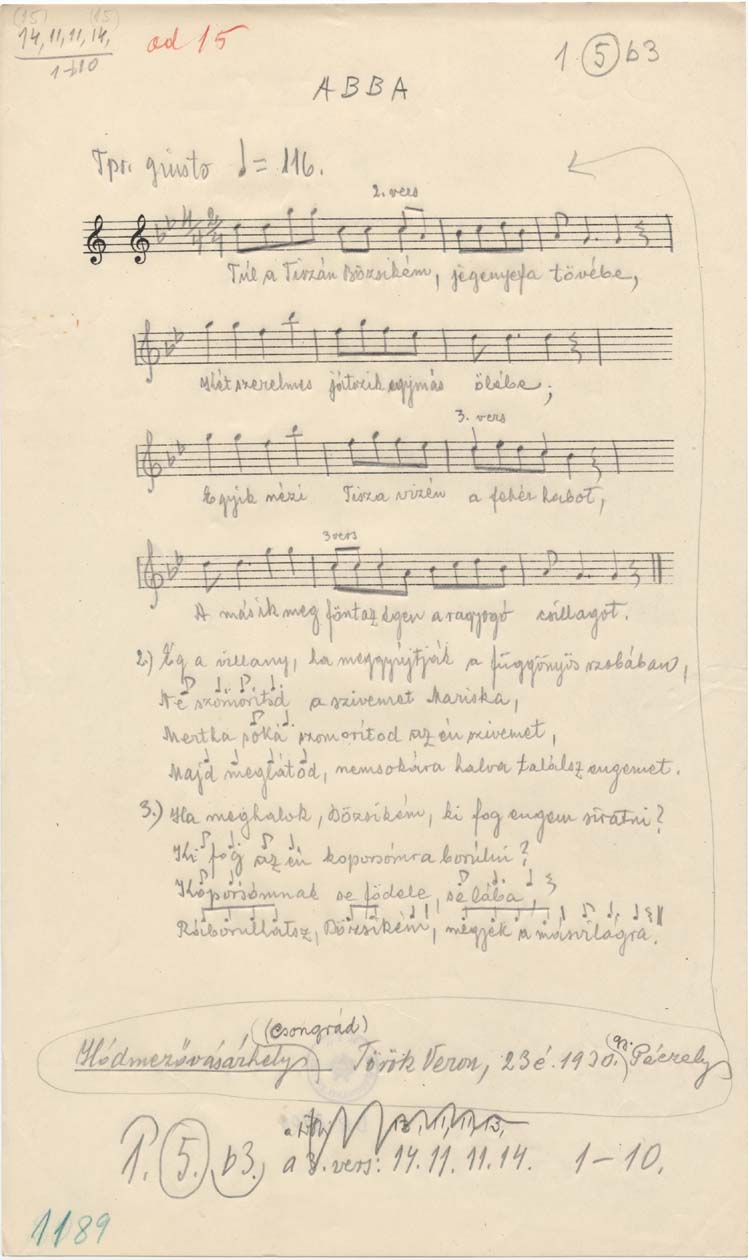 (15) (15)
14, 11, 11, 14,
1-b10
od 15
1 5 b3
ABBA
Tpr. giusto ♩= 116.
2. vers
4/4 2/4
Túl a Tiszán Bözsikém, jegenyefa tövébe,
Két szerelmes játszik egymás ölébe;
3. vers
Egyik nézi Tisza vizén a fehér habot,
3 vers
A másik meg fönt az égen a ragyogó csillagot.
2.) Ég a villany, ha meggyújtják a függönyös szobában,
Né szomorítod a szivemet Mariska,
Mertha soká szomorítod az én szivemet,
Majd meglátod, nemsokára halva találsz engemet.
3.) Ha meghalok, Bözsikém, ki fog engem siratni?
Ki fog az én koporsómra borúlni?
Koporsómnak se födele, se lába,
Ráborúlhatsz, Bözsikém, megyek a másvilágra.
(Csongrád)
Hódmezővásárhely Török Veron, 23 é. 1930. (gy. Péczely)
13, 11, 11, 13,
1. 5. b3. a 3. vers: 14. 11. 11. 14. 1-10.
1189